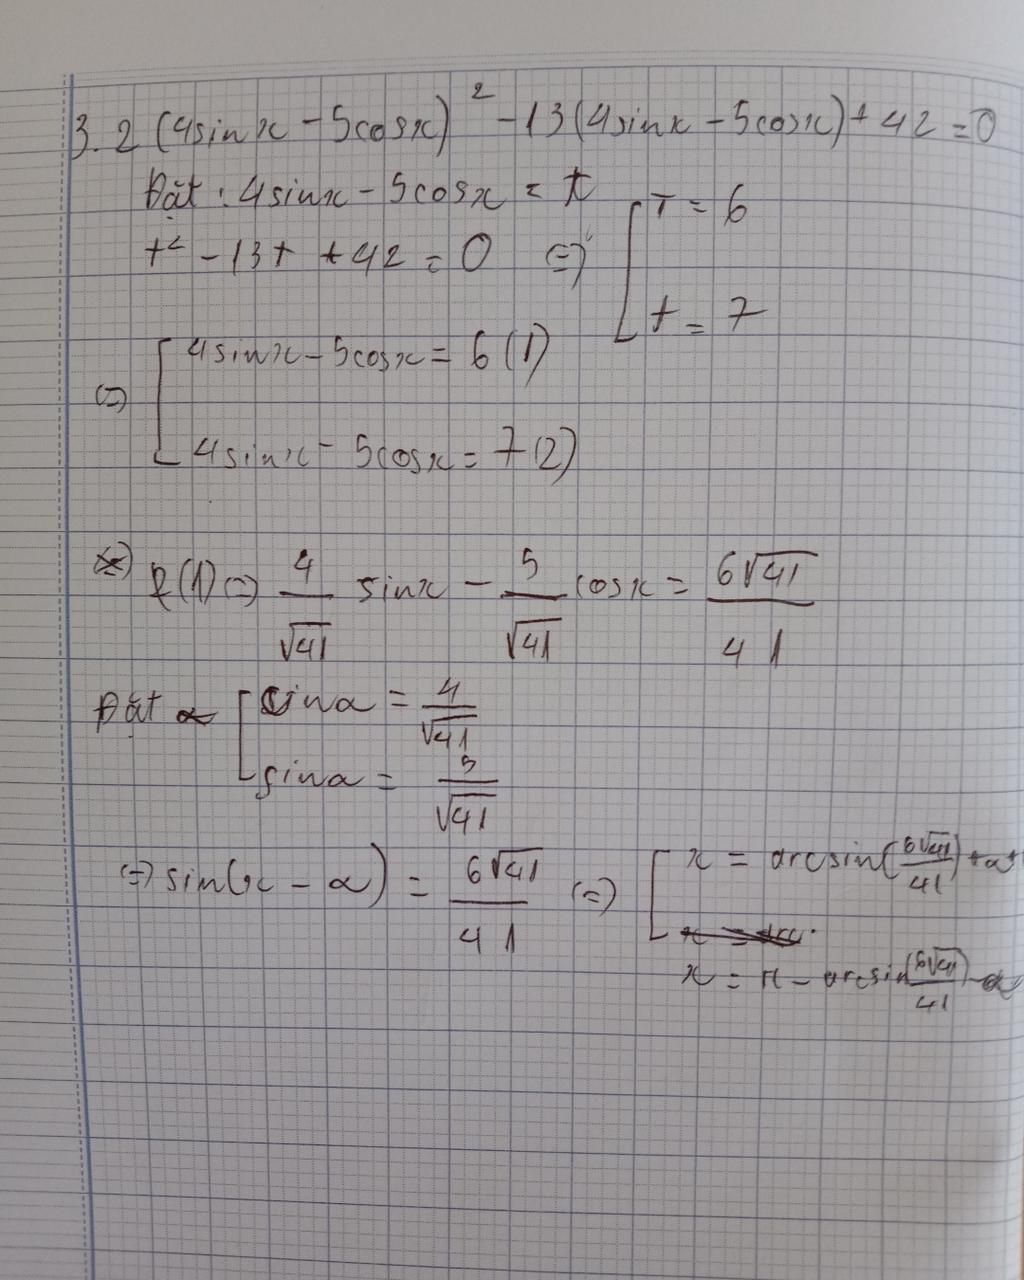 3.2 (4sinx - 5cosx)² - 13(4sinx - 5cosx) + 42 = 0
Đặt : 4sinx - 5cosx = t
t² - 13t + 42 = 0 => [ T = 6
t = 7
<=> [ 4sinx - 5cosx = 6 (1)
4sinx - 5cosx = 7 (2)
(1) <=> 4/√41 sinx - 5/√41 cosx = 6√41/41
Đặt [ cosα = 4/√41
sinα = 5/√41
<=> sin(x - α) = 6√41/41 <=> [ x = arcsin(6√41/41) + α +
x = π - arcsin(6√41/41)